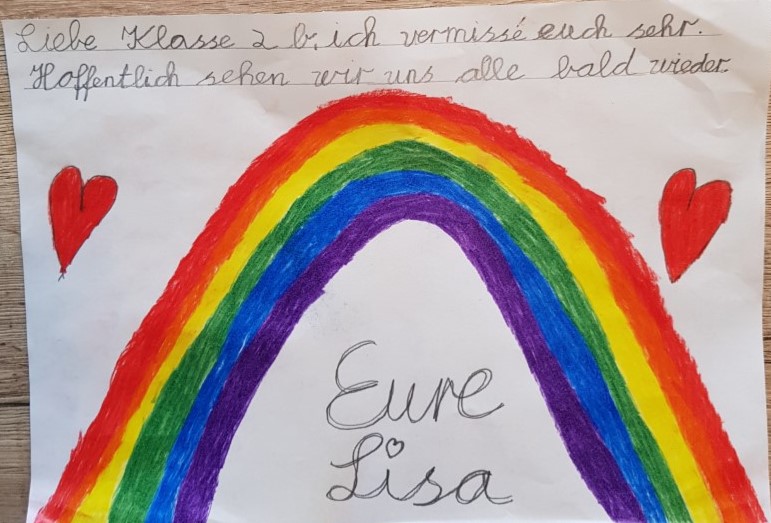 Liebe Klasse 2 b, ich vermisse euch sehr.
Hoffentlich sehen wir uns alle bald wieder.
Eure
Lisa